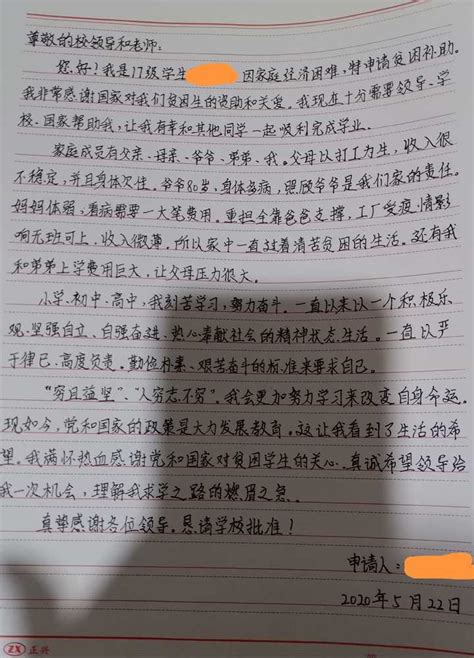 尊敬的校领导和老师:
您好!我是17级学生 因家庭经济困难,特申请贫困补助。
我非常感谢国家对我们贫困生的资助和关爱。我现在十分需要领导、学
校、国家帮助我,让我有幸和其他同学一起顺利完成学业。
家庭成员有父亲、母亲、爷爷、弟弟、我。父母以打工为生,收入很
不稳定,并且身体欠佳。爷爷80岁、身体多病,照顾爷爷是我们家的责任。
妈妈体弱,看病需要一大笔费用。重担全靠爸爸支撑,工厂受疫情影
响无班可上,收入微薄。所以家中一直过着清苦贫困的生活。还有我
和弟弟上学费用巨大,让父母压力很大。
小学、初中、高中,我刻苦学习,努力奋斗。一直以来以一个积极乐
观、坚强自立、自强奋进、热心奉献社会的精神状态生活。一直以严
于律已、高度负责。勤俭朴素、艰苦奋斗的标准来要求自己。
“穷且益坚”、“人穷志不穷”。我会更加努力学习来改变自身命运。
现如今,党和国家的政策是大力发展教育。这让我看到了生活的希
望。我满怀热血感谢党和国家对贫困学生的关心。真诚希望领导给
我一次机会,理解我求学之路的燃眉之急。
真挚感谢各位领导。恳请学校批准!
申请人:
2020年5月22日
ZX 正兴